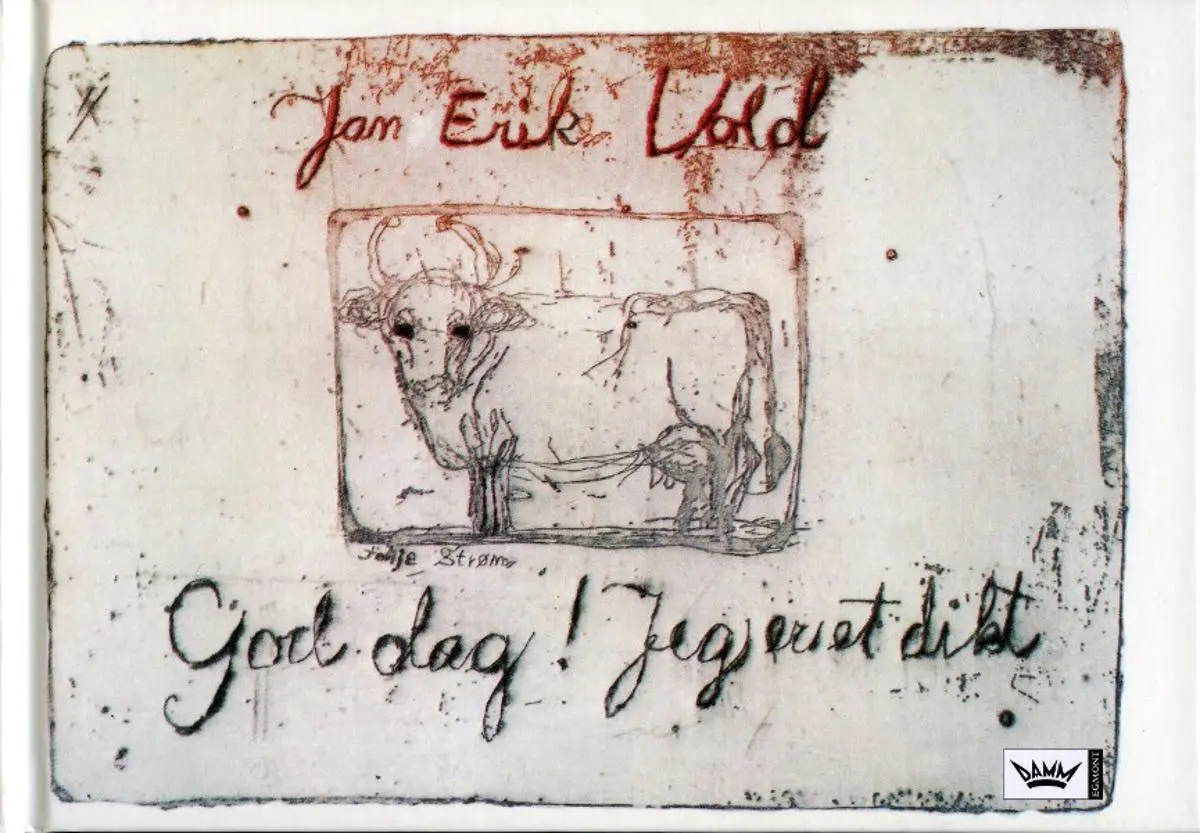 Jan Erik Vold
Tonje Strøm
God dag! Jeg er et dikt
DAMM
EGMONT